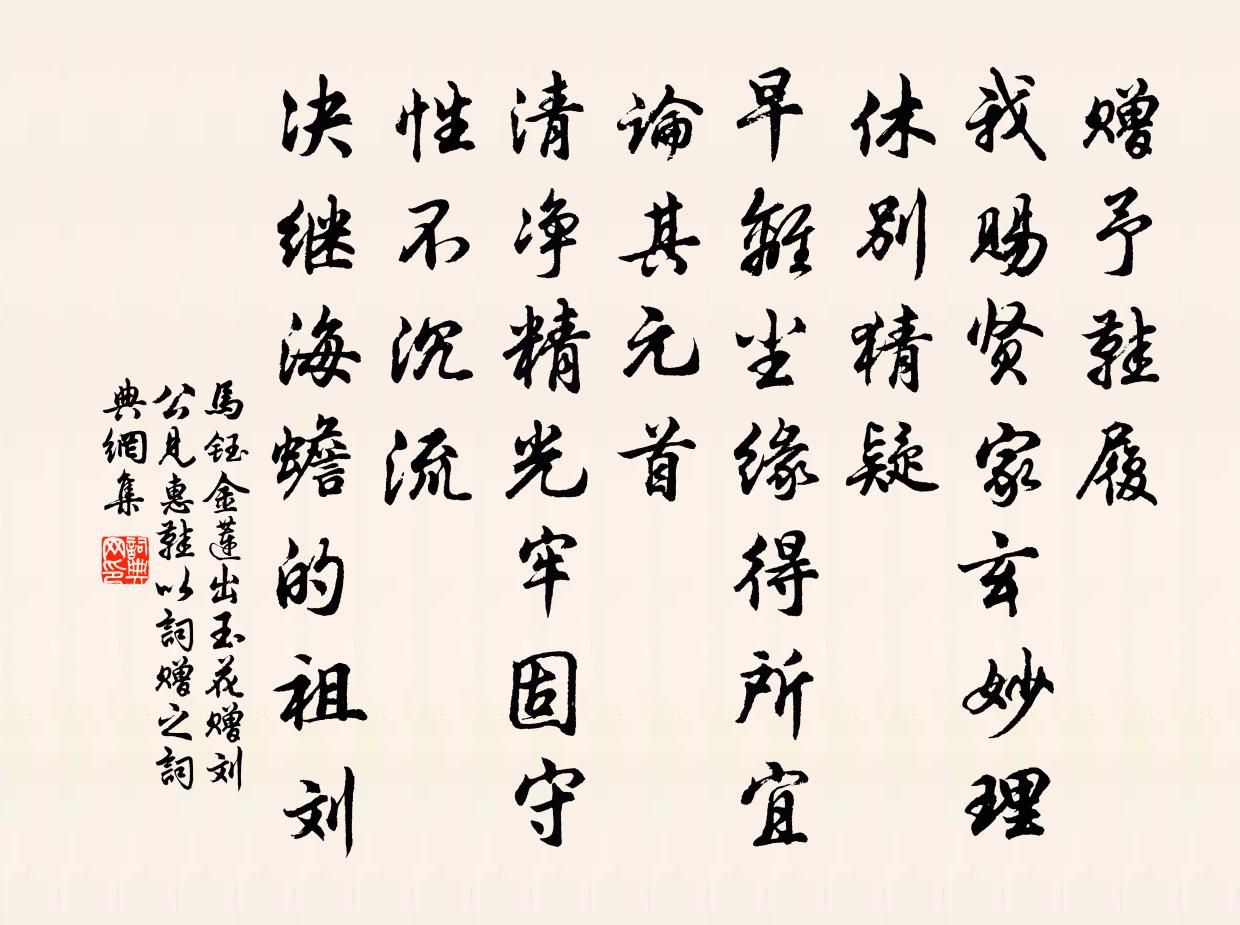 赠予鞋履
我赐贤家玄妙理
休别猜疑
早離尘缘得所宜
論其元首
清净精光牢固守
性不沉流
决继海蟾的祖刘
馬钰金莲出玉花赠刘
公見惠鞋以詞赠之詞
典網集
詞典
网印